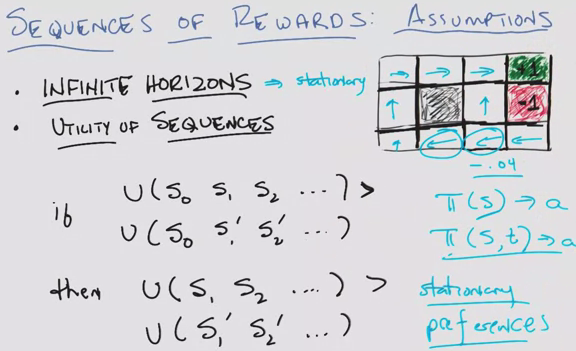 SEQUENCES OF REWARDS: ASSUMPTIONS
• INFINITE HORIZONS ⇒ stationary
• UTILITY OF SEQUENCES
+1
-1
-.04
if U(S₀ S₁ S₂ ...) >
U(S₀ S₁' S₂' ...)
then U(S₁ S₂ ...) >
U(S₁' S₂' ...)
π(s) → a
π(s,t) → a
stationary
preferences